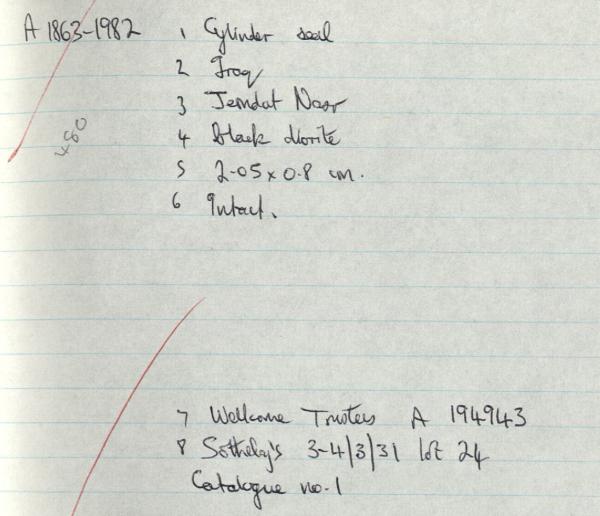 A 1863-1982 1 Cylinder seal
2 Iraq
3 Jemdat Nasr
4 black diorite
x60
5 2.05 x 0.8 cm.
6 Intact.
7 Wellcome Trustees A 194943
8 Sotheby's 3-4/3/31 lot 24
Catalogue no. 1